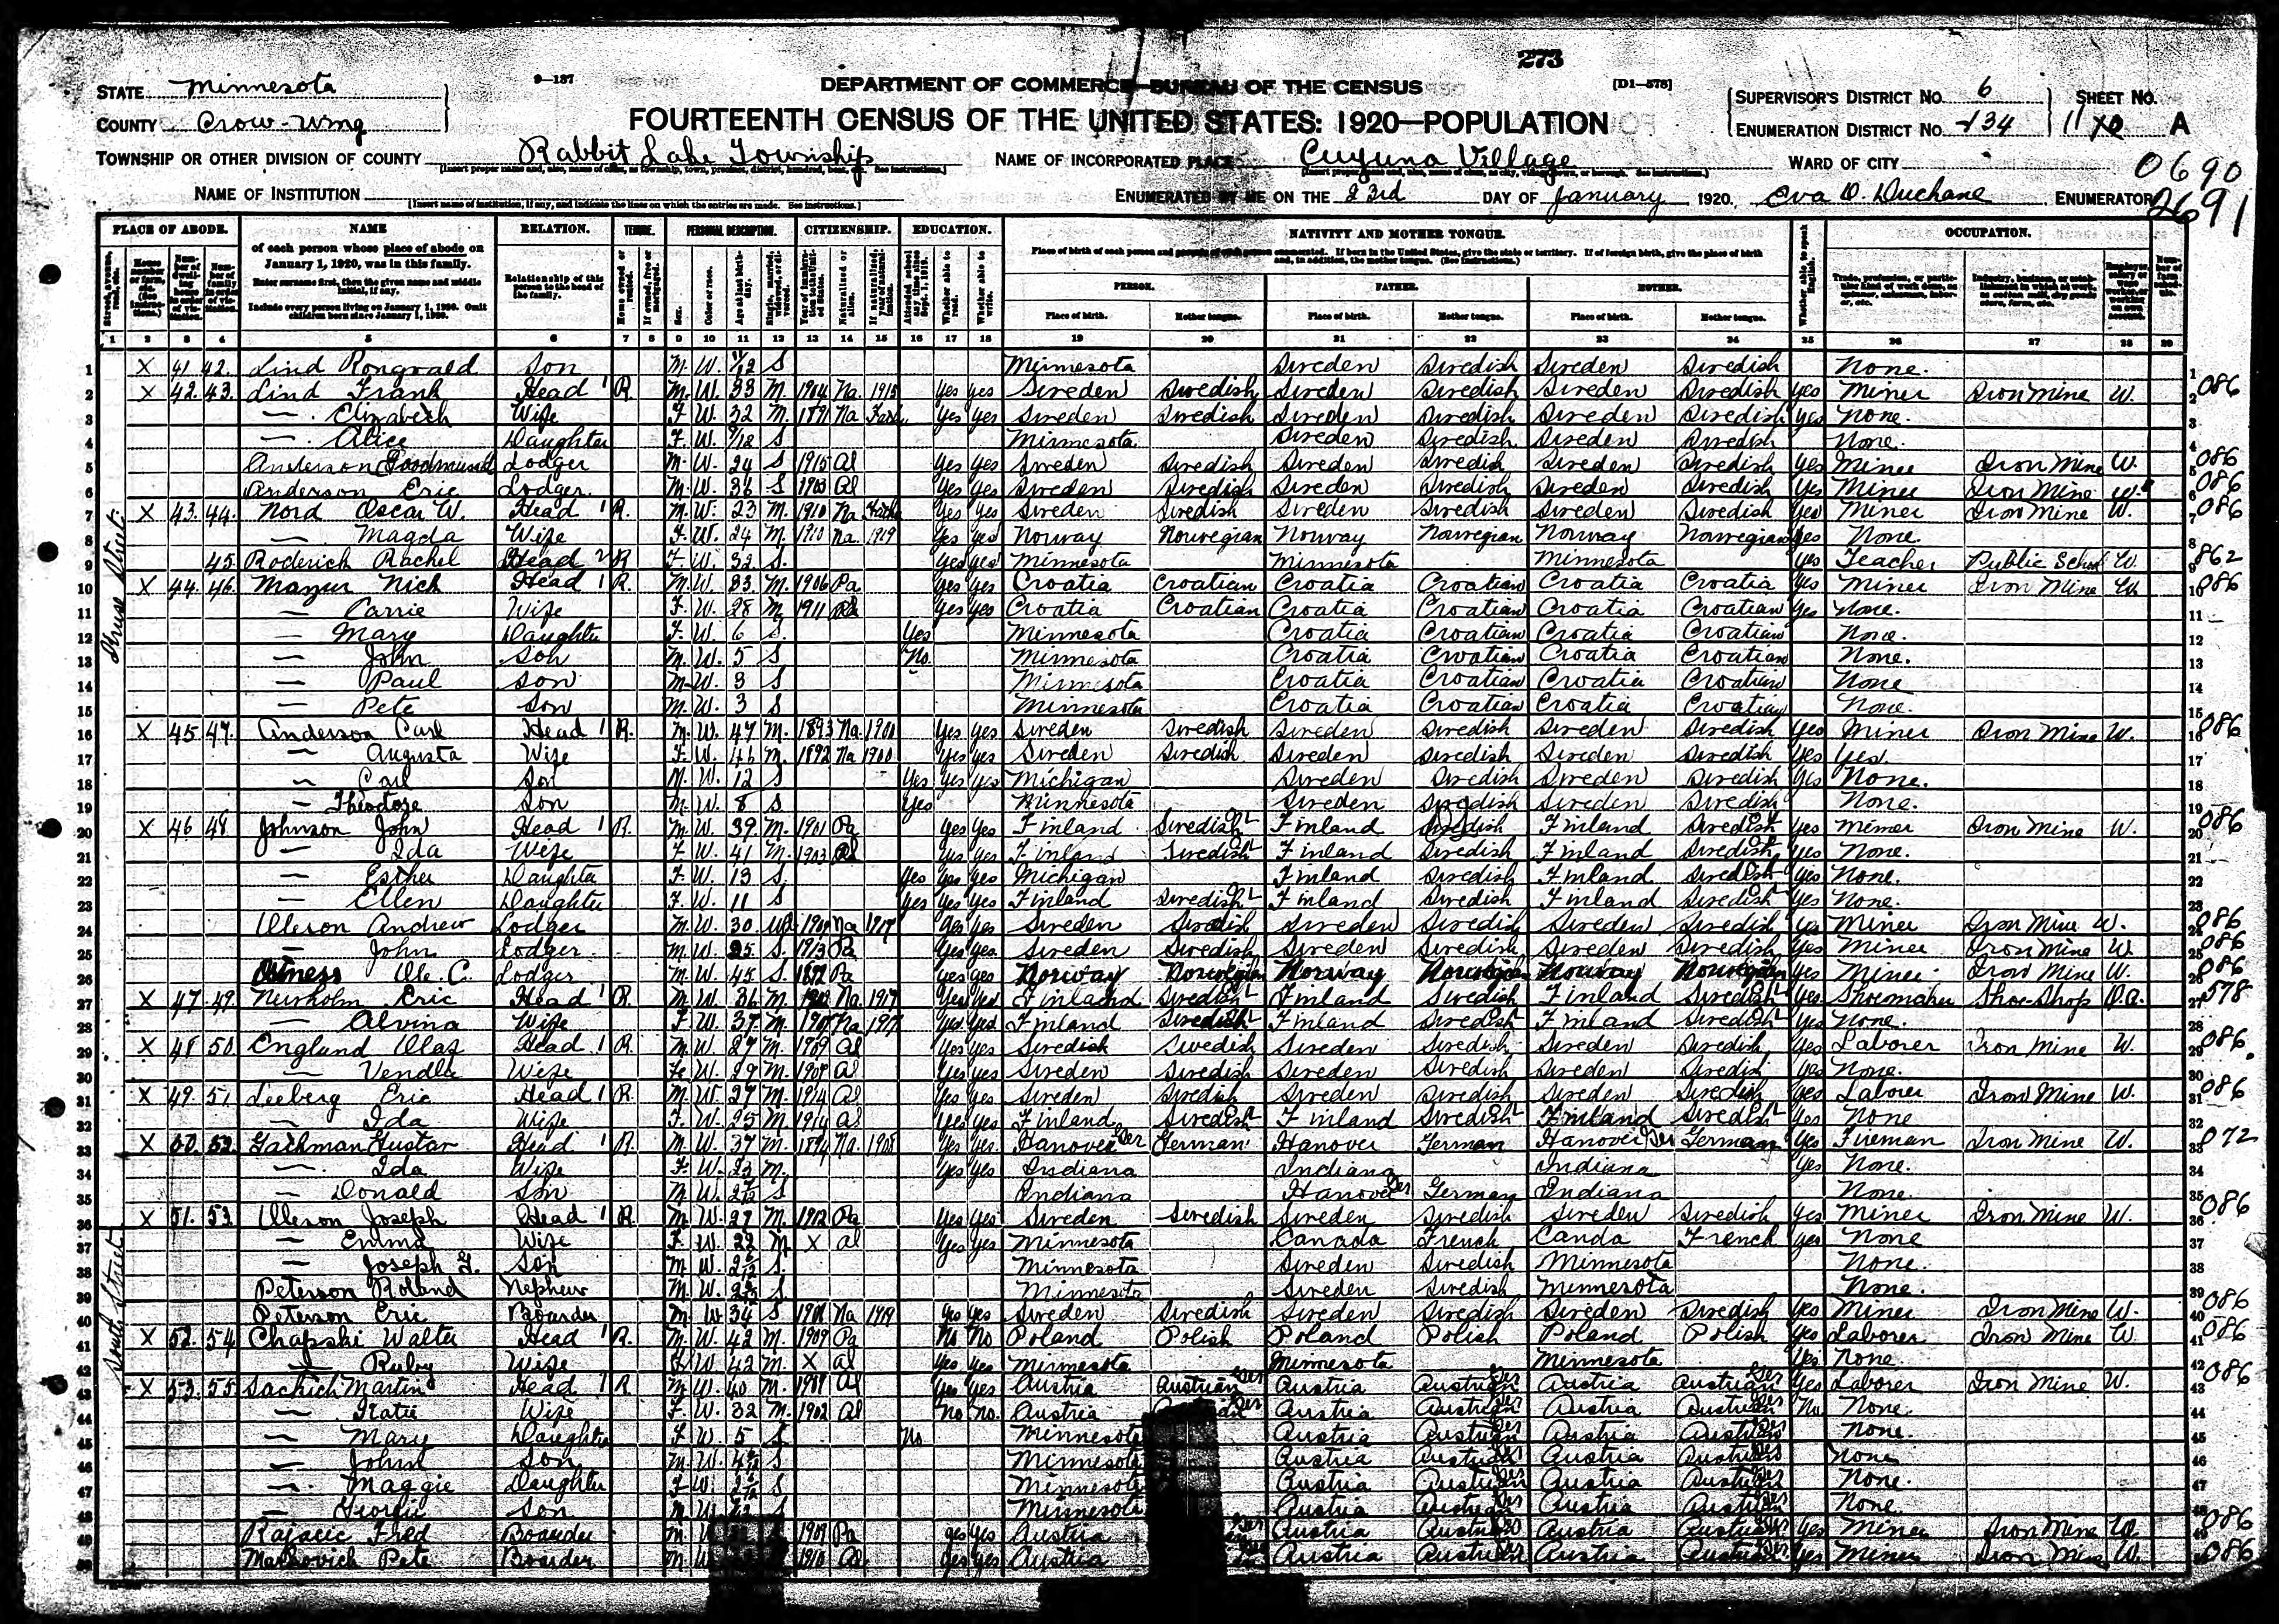 273
9—137
DEPARTMENT OF COMMERCE—BUREAU OF THE CENSUS
[D1—578]
STATE Minnesota
COUNTY Crow-Wing
FOURTEENTH CENSUS OF THE UNITED STATES: 1920—POPULATION
SUPERVISOR'S DISTRICT No. 6
ENUMERATION DISTRICT No. 134
SHEET No.
11 A
TOWNSHIP OR OTHER DIVISION OF COUNTY Rabbit Lake Township
NAME OF INCORPORATED PLACE Cuyuna Village
WARD OF CITY
0690
NAME OF INSTITUTION
ENUMERATED BY ME ON THE 23rd DAY OF January 1920. Eva D. Duchane ENUMERATOR
2691
PLACE OF ABODE. NAME RELATION. TENURE. PERSONAL DESCRIPTION. CITIZENSHIP. EDUCATION. NATIVITY AND MOTHER TONGUE. OCCUPATION.
of each person whose place of abode on January 1, 1920, was in this family.
Enter surname first, then the given name and middle initial, if any.
Include every person living on January 1, 1920. Omit children born since January 1, 1920.
Relationship of this person to the head of the family.
PERSON. FATHER. MOTHER.
Place of birth. Mother tongue. Place of birth. Mother tongue. Place of birth. Mother tongue.
1 2 3 4 5 6 7 8 9 10 11 12 13 14 15 16 17 18 19 20 21 22 23 24 25 26 27 28 29
1 X 41 42 Lind Rongvald Son M. W. 11/12 S Minnesota Sweden Swedish Sweden Swedish None.
2 X 42 43 Lind Frank Head 1 R. M. W. 33 M. 1904 Na. 1915 Yes Yes Sweden Swedish Sweden Swedish Sweden Swedish Yes Miner Iron Mine W. 086
3 — Elizabeth Wife F. W. 32 M. 1891 Na Yes Yes Sweden Swedish Sweden Swedish Sweden Swedish Yes None.
4 — Alice Daughter F. W. S Minnesota Sweden Swedish Sweden Swedish None.
5 Anderson Goodmund Lodger M. W. 24 S 1915 Al Yes Yes Sweden Swedish Sweden Swedish Sweden Swedish Yes Miner Iron Mine W. 086
6 Anderson Eric Lodger. M. W. 36 S Al Yes Yes Sweden Swedish Sweden Swedish Sweden Swedish Yes Miner Iron Mine W. 086
7 X 43. 44. Nord Oscar W. Head 1 R. M. W. 23 M. 1910 Na Yes Yes Sweden Swedish Sweden Swedish Sweden Swedish Yes Miner Iron Mine W. 086
8 — Magda Wife F. W. 24 M. 1910 Na. 1919 Yes Yes Norway Norwegian Norway Norwegian Norway Norwegian Yes None.
9 45 Roderich Rachel Head 2 R F W. 32 S. Yes Yes Minnesota Minnesota Minnesota Yes Teacher Public School W. 862
10 X 44. 46. Mazur Nick Head 1 R. M. W. 33 M. 1906 Pa Yes Yes Croatia Croatian Croatia Croatian Croatia Croatia Yes Miner Iron Mine W. 086
11 — Carrie Wife F. W. 28 M 1911 Yes Yes Croatia Croatian Croatia Croatian Croatia Croatian Yes None.
12 — Mary Daughter F. W. 6 S. Yes Minnesota Croatia Croatian Croatia Croatian None.
13 — John Son M. W. 5 S No. Minnesota Croatia Croatian Croatia Croatian None.
14 — Paul Son M. W. 3 S Minnesota Croatia Croatian Croatia Croatian None
15 — Pete Son M. W. 3 S Minnesota Croatia Croatian Croatia Croatian None.
16 X 45 47. Anderson Carl Head 1 R. M. W. 47 M. 1893 Na. 1900 Yes Yes Sweden Swedish Sweden Swedish Sweden Swedish Yes Miner Iron Mine W. 086
17 — Augusta Wife F. W. 46 M. 1892 Na 1900 Yes Yes Sweden Swedish Sweden Swedish Sweden Swedish Yes Yes.
18 — Carl Son M. W. 12 S Yes Yes Yes Michigan Sweden Swedish Sweden Swedish Yes None.
19 — Theodore Son M. W. 8 S Yes Minnesota Sweden Swedish Sweden Swedish None.
20 X 46 48. Johnson John Head 1 R. M. W. 39 M. 1901 Pa Yes Yes Finland Swedish Finland Swedish Finland Swedish Yes Miner Iron Mine W. 086
21 — Ida Wife F W. 41 M. 1903 Yes Yes Finland Swedish Finland Swedish Finland Swedish Yes None.
22 — Esther Daughter F. W. 13 S. Yes Yes Yes Michigan Finland Swedish Finland Swedish Yes None.
23 — Ellen Daughter F. W. 11 S Yes Yes Yes Finland Swedish Finland Swedish Finland Swedish Yes None.
24 Oleson Andrew Lodger M. W. 30 Wd Na 1917 Yes Yes Sweden Swedish Sweden Swedish Sweden Swedish Yes Miner Iron Mine W. 086
25 — John Lodger M. W. 25 S. 1913 Pa Yes Yes Sweden Swedish Sweden Swedish Sweden Swedish Yes Miner Iron Mine W. 086
26 Ole. C. Lodger M. W. 45 S. Pa Yes Yes Norway Norwegian Norway Norwegian Norway Norwegian Yes Miner Iron Mine W. 086
27 X 47. 49. Newholm Eric Head 1 R. M. W. 36 M. Na. 1917 Yes Yes Finland Swedish Finland Swedish Finland Swedish Yes Shoemaker Shoe Shop O.A. 578
28 — Alvina Wife F. W. 37 M. Na Yes Yes Finland Swedish Finland Swedish Finland Swedish Yes None.
29 X 48 50. England Olaf Head 1 R. M. W. 27 M. 1909 Al Yes Yes Swedish Swedish Sweden Swedish Sweden Swedish Yes Laborer Iron Mine W. 086
30 — Vendla Wife Fe W. 29 M. Al Yes Yes Sweden Swedish Sweden Swedish Sweden Swedish Yes None.
31 X 49. 51. Leeberg Eric Head 1 R. M. W. 37 M. 1914 Al Yes Yes Sweden Swedish Sweden Swedish Sweden Swedish Yes Laborer Iron Mine W. 086
32 — Ida Wife F. W. 25 M 1914 Al Yes Yes Finland Swedish Finland Swedish Finland Swedish Yes None
33 X 50. 52. Gustav Head 1 R. M. W. 37 M. Na. 1908 Yes Yes. Hanover Ger German Hanover German Hanover Ger German Yes Fireman Iron Mine W. 072
34 — Ida Wife F. W. 23 M. Yes Yes Indiana Indiana Indiana Yes None.
35 — Donald Son M. W. S Indiana Hanover Ger German Indiana None.
36 X 51. 53. Oleson Joseph Head 1 R. M. W. 27 M. 1912 Pa Yes Yes Sweden Swedish Sweden Swedish Sweden Swedish Yes Miner Iron Mine W. 086
37 — Emma Wife F. W. 22 M. X Al Yes Yes Minnesota Canada French Canda French Yes None
38 — Joseph G. Son M W. S. Minnesota Sweden Swedish Minnesota None.
39 Peterson Roland Nephew M. W. S. Minnesota Sweden Swedish Minnesota None.
40 Peterson Eric Boarder M. W 34 S Na Yes Yes Sweden Swedish Sweden Swedish Sweden Swedish Yes Miner Iron Mine W. 086
41 X 52. 54. Chapski Walter Head 1 R. M. W. 42 M. 1909 Pa No No Poland Polish Poland Polish Poland Polish Yes Laborer Iron Mine W. 086
42 — Ruby Wife F W 42 M. X Al Yes Yes Minnesota Minnesota Minnesota Yes None.
43 X 53. 55. Sackich Martin Head 1 R M. W. 40 M. Al Yes Yes Austria Austrian Ger Austria Austrian Ger Austria Austrian Ger Yes Laborer Iron Mine W. 086
44 — Katie Wife F. W. 32 M. 1902 Al No No. Austria Austria Austrian Ger Austria Austrian Ger No. None.
45 — Mary Daughter F W. 5 S No Minnesota Austria Austrian Ger Austria Austrian Ger None.
46 — John Son M. W. S Minnesota Austria Austrian Ger Austria Austrian Ger None
47 — Maggie Daughter F W. S Minnesota Austria Austrian Ger Austria Austrian Ger None.
48 — George Son M W. S Minnesota Austria Austrian Ger Austria Austrian Ger None.
49 Rajacic Fred Boarder M. 1909 Pa Yes Yes Austria Austria Austrian Ger Austria Austrian Ger Yes Miner Iron Mine W. 086
50 Markovich Pete Boarder M. 1910 Al Yes Yes Austria Austria Austrian Ger Austria Austrian Ger Yes Miner Iron Mine W. 086
South Street